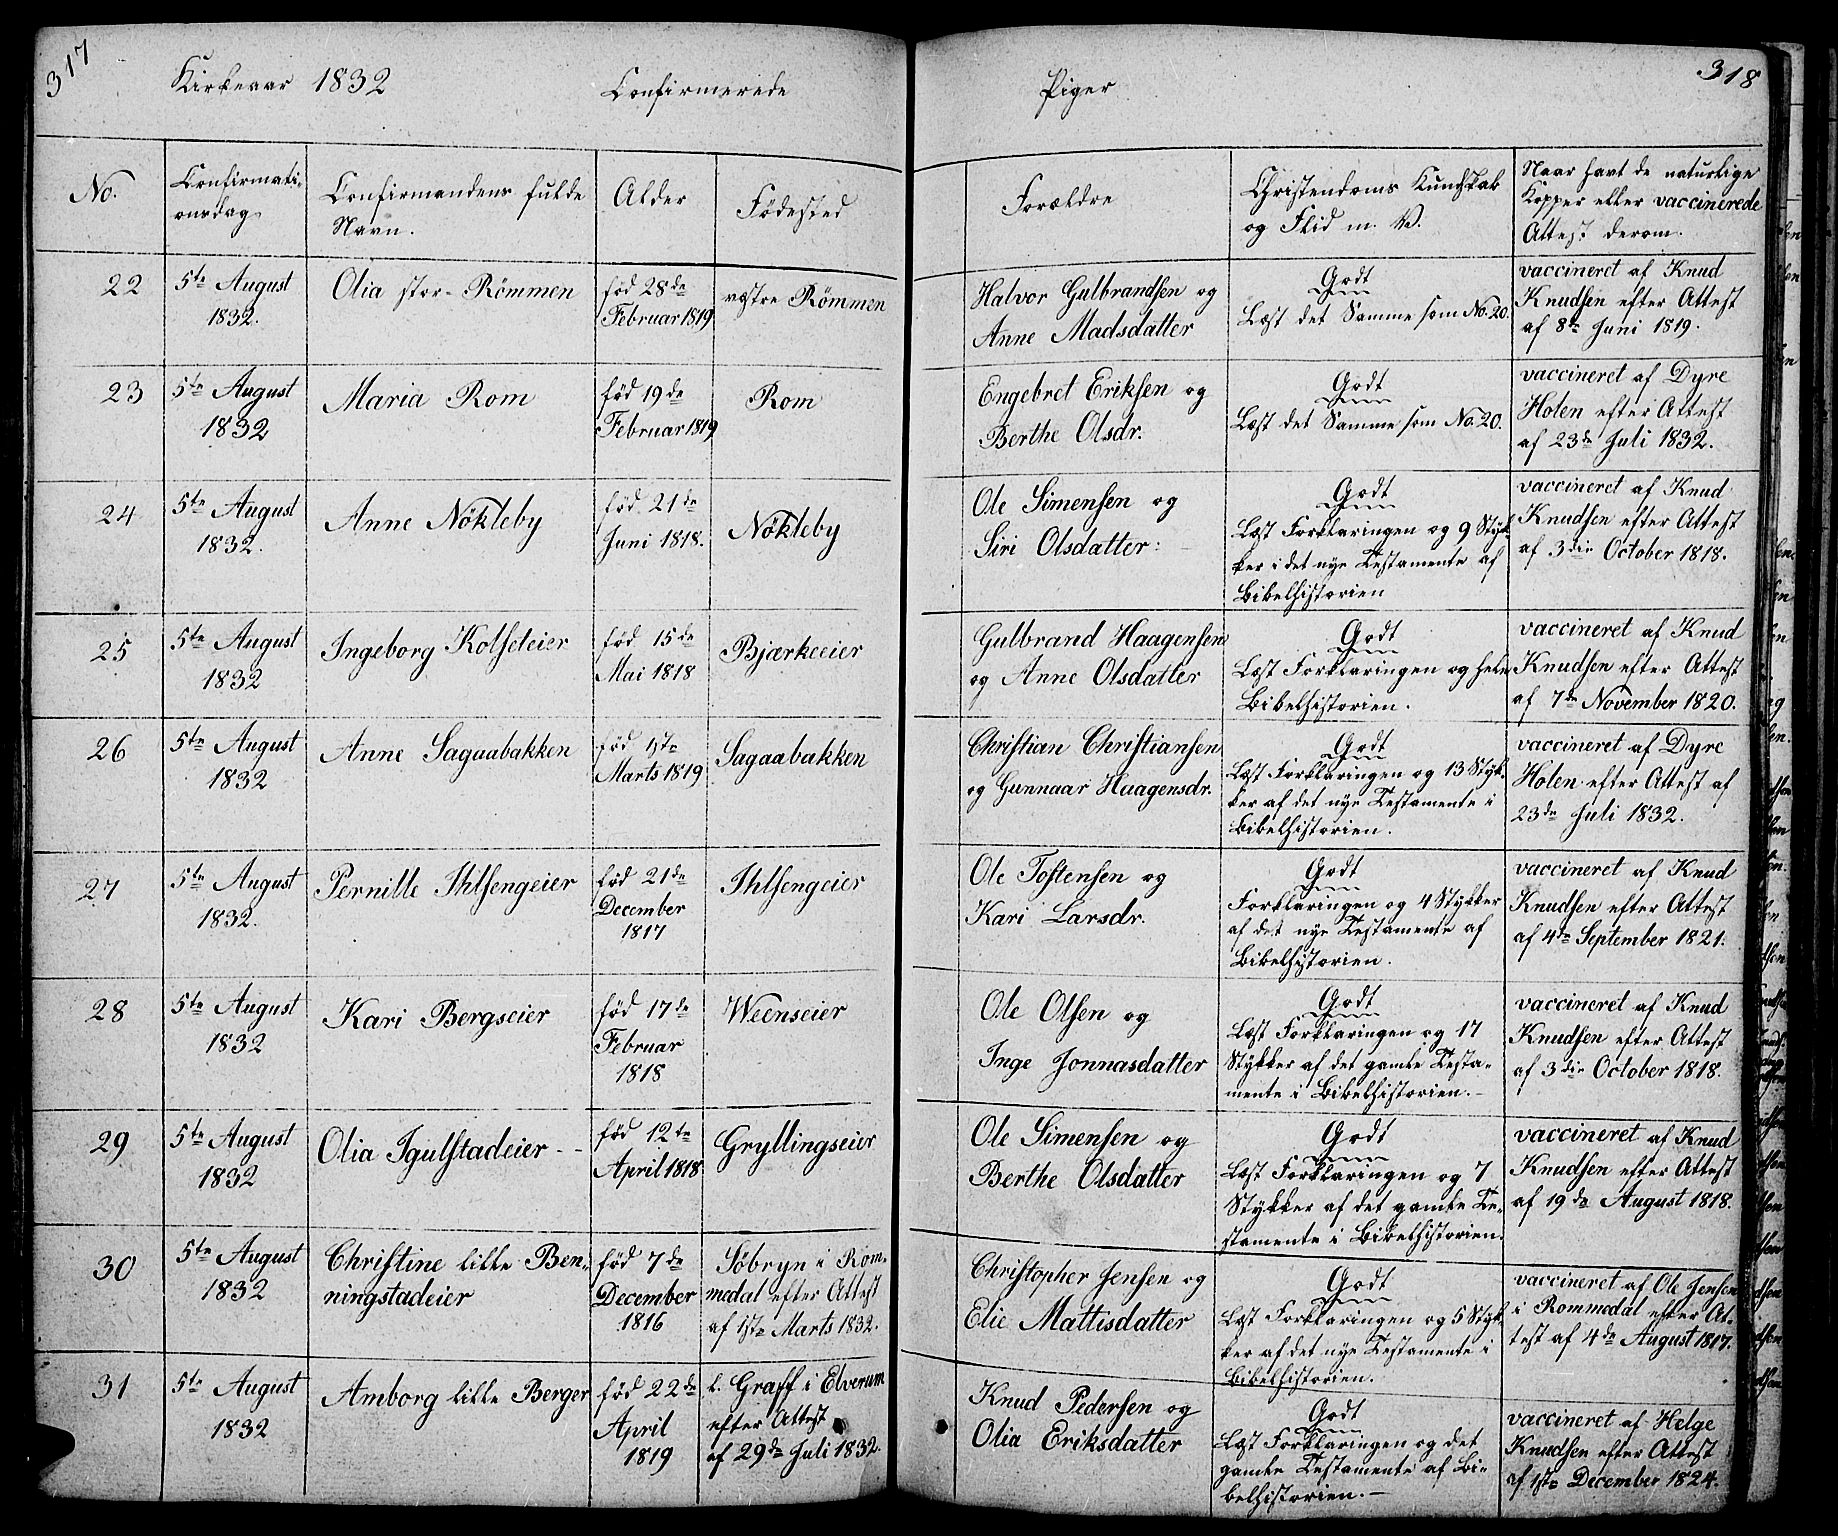 317
Kirkeaar 1832 Confirmerede Piger
318
No.
Confirmati-
onsdag
Confirmandens fulde
Navn.
Alder
Fødested
Forældre
Christendoms Kundskab
og Flid m. V.
Naar havt de naturlige
Kopper eller vaccinerede
Attest derom.
22
5te August
1832.
Olia stor-Römmen
fød 28de
Februar 1819
vestre Römmen
Halvor Gulbrandsen og
Anne Madsdatter
Godt
Læst det Samme som No. 20.
vaccineret af Knud
Knudsen efter Attest
af 8de Juni 1819.
23
5te August
1832
Maria Rom
fød 19de
Februar 1819
Rom
Engebret Eriksen og
Berthe Olsdr.
Godt
Læst det Samme som No. 20.
vaccineret af Dyre
Holen efter Attest
af 23de Juli 1832.
24
5te August
1832.
Anne Nökleby
fød 21de
Juni 1818.
Nökleby
Ole Simensen og
Siri Olsdatter:
Godt
Læst Forklaringen og 9 Styk-
ker i det nye Testamente af
Bibelhistorien
vaccineret af Knud
Knudsen efter Attest
af 3die October 1818.
25
5te August
1832
Ingeborg Kolseteier
fød 15de
Mai 1818
Bjærkeeier
Gulbrand Haagensen
og Anne Olsdatter
Godt
Læst Forklaringen og hele
Bibelhistorien.
vaccineret af Knud
Knudsen efter Attest
af 7de November 1820.
26
5te August
1832
Anne Sagaabakken
fød 1ste
Marts 1819
Sagaabakken
Christian Christiansen
og Gunnaar Haagensdr.
Godt
Læst Forklaringen og 13 Styk-
ker af det nye Testamente i
Bibelhistorien.
vaccineret af Dyre
Holen efter Attest af
23de Juli 1832.
27
5te August
1832.
Pernille Ihlsengeier
fød 21de
December
1817
Ihlsengeier
Ole Tostensen og
Kari Larsdr.
Godt
Forklaringen og 4 Stykker
af det nye Testamente af
Bibelhistorien.
vaccineret af Knud
Knudsen efter Attest
af 4de September 1821.
28
5te August
1832
Kari Bergseier
fød 17de
Februar
1818
Weenseier
Ole Olsen og
Inge Jonnasdatter
Godt
Læst Forklaringen og 17
Stykker af det gamle Testa-
mente i Bibelhistorien.
vaccineret af Knud
Knudsen efter Attest
af 3die October 1818.
29
5te August
1832
Olia Igulstadeier
fød 12te
April 1818
Gryllingseier
Ole Simensen og
Berthe Olsdatter
Godt
Læst Forklaringen og 7
Stykker af det gamle Te-
stamente i Bibelhistorien.
vaccineret af Knud
Knudsen efter Attest
af 19de August 1818.
30
5te August
1832
Christine lille Ben-
ningstadeier
fød 7de
December
1816
Söbryn i Rom-
medal efter Attest
af 1ste Marts 1832.
Christopher Jensen og
Elie Mattisdatter
Godt
Læst Forklaringen og 5 Styk-
ker af det nye Testamente i
Bibelhistorien.
vaccineret af Ole Jensen
i Rommedal efter At-
test af 4de August 1817.
31
5te August
1832
Amborg lille Berger
fød 22de
April
1819
l. Graff i Elverum
efter Attest
af 29de Juli 1832
Knud Pedersen og
Olia Eriksdatter
Godt
Læst Forklaringen og det
gamle Testamente af Bi-
belhistorien.
vaccineret af Helge
Knudsen efter Attest
af 1ste December 1824.